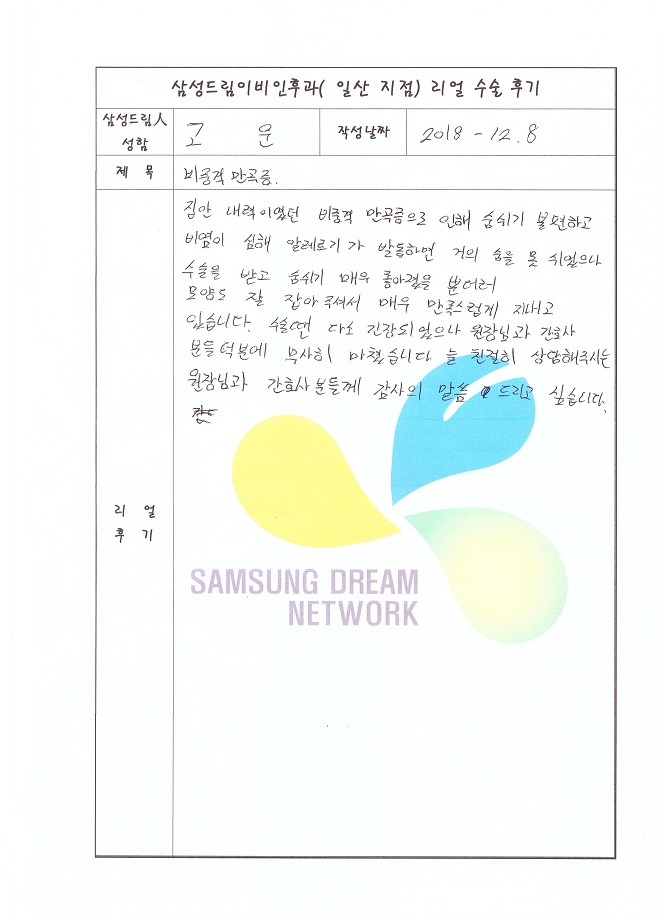 삼성드림이비인후과( 일산 지점) 리얼 수술 후기
삼성드림人
성함
고 운
작성날짜
2018 - 12. 8
제 목
비중격 만곡증.
집안 내력이였던 비중격 만곡증으로 인해 숨쉬기 불편하고
비염이 심해 알레르기가 발동하면 거의 숨을 못 쉬었으나
수술을 받고 숨쉬기 매우 좋아졌을 뿐더러
모양도 잘 잡아주셔서 매우 만족스럽게 지내고
있습니다. 수술땐 다소 긴장되었으나 원장님과 간호사
분들덕분에 무사히 마쳤습니다 늘 친절히 상담해주시는
원장님과 간호사분들께 감사의 말씀 드리고 싶습니다.
리 얼
후 기
SAMSUNG DREAM
NETWORK